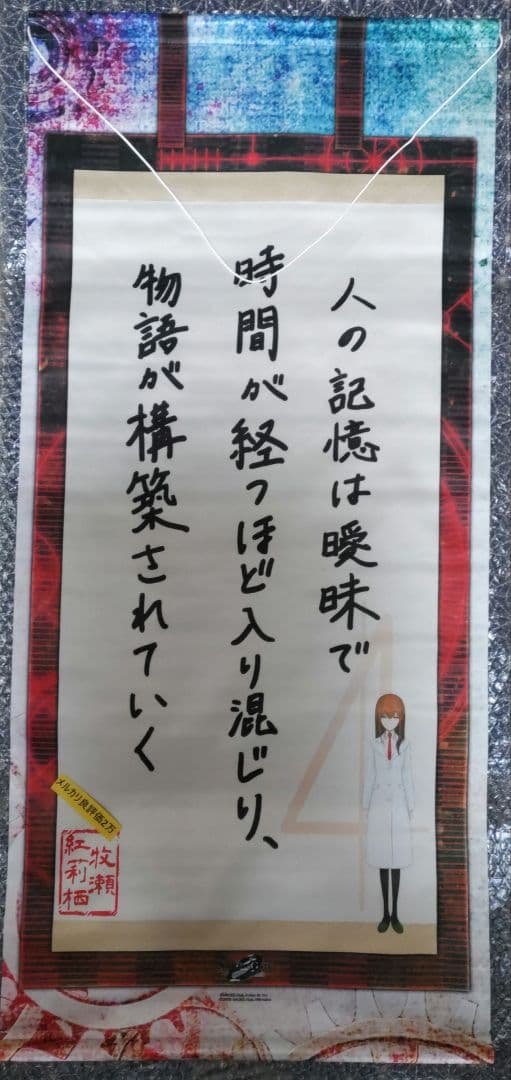 人の記憶は曖昧で
時間が経つほど入り混じり、
物語が構築されていく
メルカリ良評価2万
牧瀬
紅莉栖
4